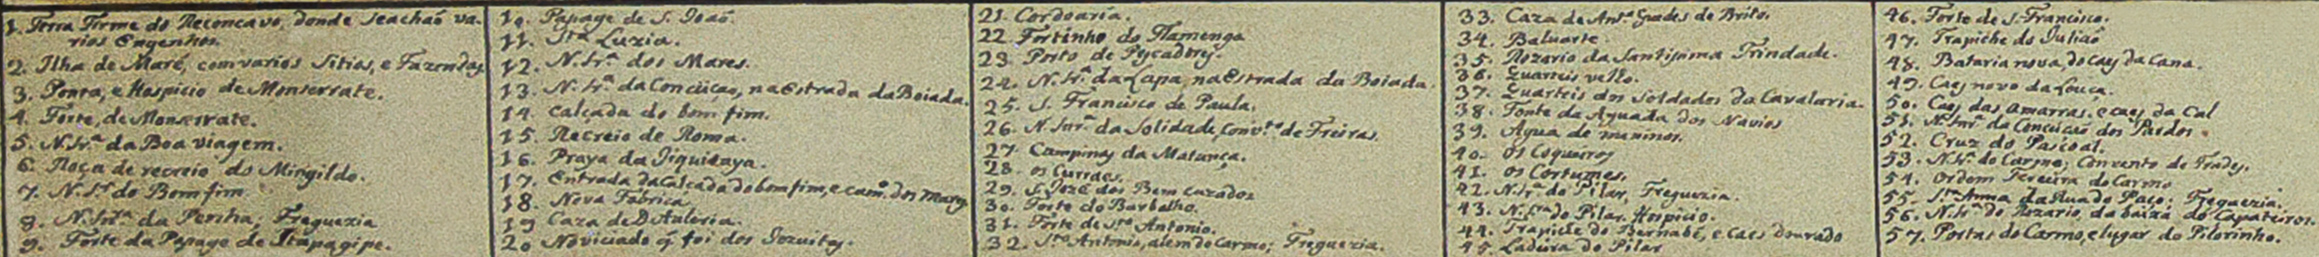 1. Terra Firme do Reconcavo, donde seachaõ va-
rios Engenhos.
2. Ilha de Maré, com varios Sitios, e Fazendas
3. Ponta, e Hospicio de Monserrate.
4. Forte, de Monserrate.
5. N. Sr.ª da Boa viagem.
6. Roça de recreio do Mingildo.
7. N. Sr. do Bom fim.
8. N. Snr.ª da Penha; Freguezia
9. Forte da Papage de Itapagipe.
10. Papage de S. Joaõ.
11. Sta Luzia.
12. N. Sr.ª dos Mares.
13. N. Sr.ª da Conçeiçaõ, na Estrada da Boiada.
14. calçada do bom fim.
15. Recreio de Roma.
16. Praya da Giquitaya.
17. Entrada da Calçada do bom fim, e cam.º dos Mares
18. Nova Fabrica
19 Caza de D.
20 Noviciado q̃ foi dos Jezuitas.
21. Cordoaria.
22 Fortinho do Flamengo
23. Porto de Pescadores.
24. N. Sr.ª da Lapa, na Estrada da Boiada.
25. S. Francisco de Paula.
26. N. Snr.ª da Solidade, Conv.to de Freiras.
27. Campinas da Matança.
28. os Curraes.
29. S. Jozé dos Bem cazados
30. Forte do Barbalho.
31. Forte de S.to Antonio.
32. S.to Antonio, alem do Carmo; Freguezia.
33. Caza de Ant.º Guedes de Brito.
34. Baluarte.
35. Rozario da Santissima Trindade.
36. Quarteis velho.
37. Quarteis dos Soldados da Cavalaria.
38. Fonte da Aguada dos Navios
39. Agua de meninos.
40. os Coqueiros
41. os Cortumes.
42. N. Sr.ª do Pilar, Freguezia.
43. N. Sra do Pilar, Hospicio.
44. Trapiche do Bernabé, e Caes dourado
45. Ladeira do Pilar
46. Forte de S. Francisco.
47. Trapiche do Juliaõ
48. Bataria nova, do Caes da Cana.
49. Caes novo da Louça.
50. Caes das amarras, e caes da Cal
51. N. Snr.ª da Conceicaõ dos Pardos.
52. Cruz do Pascoal.
53. N. Sr.ª do Carmo; Convento de Frades.
54. Ordem Terceira do Carmo
55. S.ta Anna da Rua do Paço; Freguezia.
56. N. Sr.ª do Rozario, da baixa do Çapateiros.
57. Portas do Carmo, e lugar do Pilorinho.